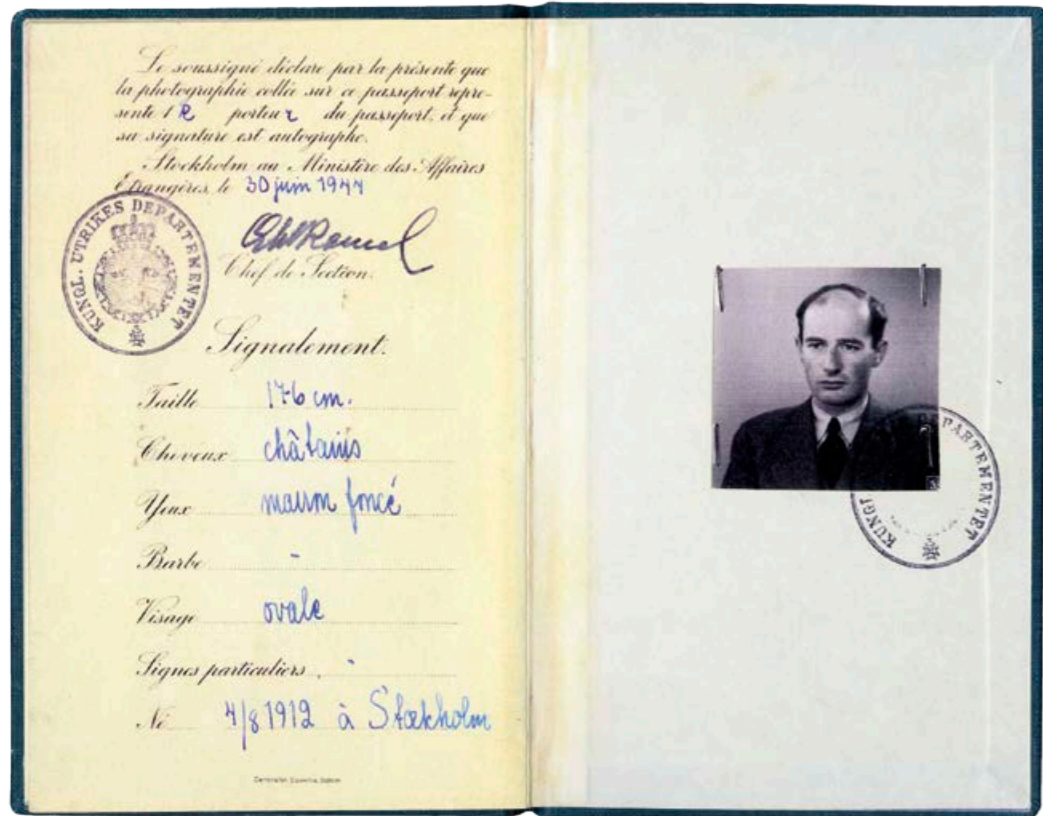 Le soussigné déclare par la présente que
la photographie collée sur ce passeport repré-
sente l e porteu r du passeport, et que
sa signature est autographe.
Stockholm au Ministère des Affaires
Étrangères, le 30 juin 1944
KUNGL. UTRIKES DEPARTEMENTET
Chef de Section.
Signalement.
Taille 176 cm.
Cheveux châtains
Yeux marron foncé
Barbe -
Visage ovale
Signes particuliers -
Né 4/8 1912 à Stockholm
KUNGL DEPARTEMENTET